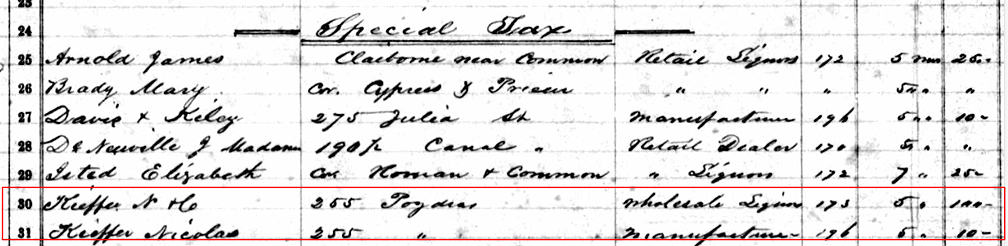 24 Special Tax
25 Arnold James Claiborne near Common Retail Liquors 172 5 mos 25-
26 Brady Mary Cor. Cypress & Prieur " " " 5 " "
27 Davis & Kiley 275 Julia St Manufacture 196 5 " 10-
28 De Neuville J Madam 190½ Canal " Retail Dealer 170 5 " "
29 Isted Elizabeth Cor Homan & Common " Liquors 172 7 " 25-
30 Kieffer N & C 255 Poydras Wholesale Liquors 173 5 " 100-
31 Kieffer Nicolas 255 " Manufacture 196 5 " 10-